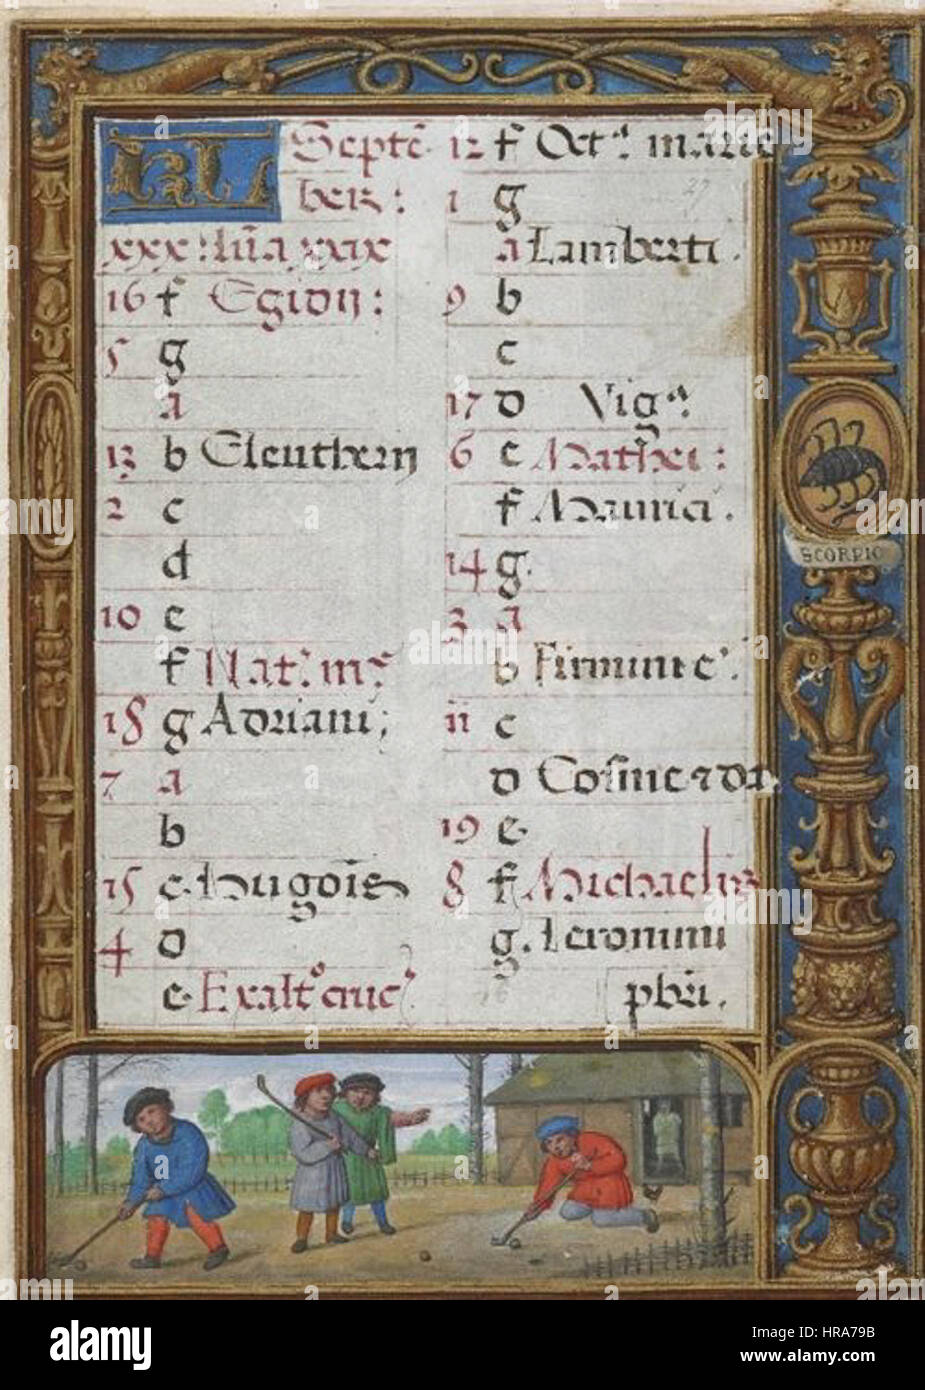 KL Septẽ
ber:
xxx: lũa xxix
16 f Egidij:
5 g
a
13 b Eleutherij
2 c
d
10 e
f Nat: m
18 g Adriani;
7 a
b
15 c Hugois
4 d
e Exalt° cruc
12 f Oct.ª marie
1 g
a Lamberti.
9 b
c
17 d Vigª.
6 e Mathei:
f Mauricii.
14 g.
3 a
b Firmini e
11 c
d Cosme ⁊ da.
19 e
8 f Michaelis
g. Ieronimi
pbri.
27
SCORPIO
alamy
Image ID: HRA79B
www.alamy.com